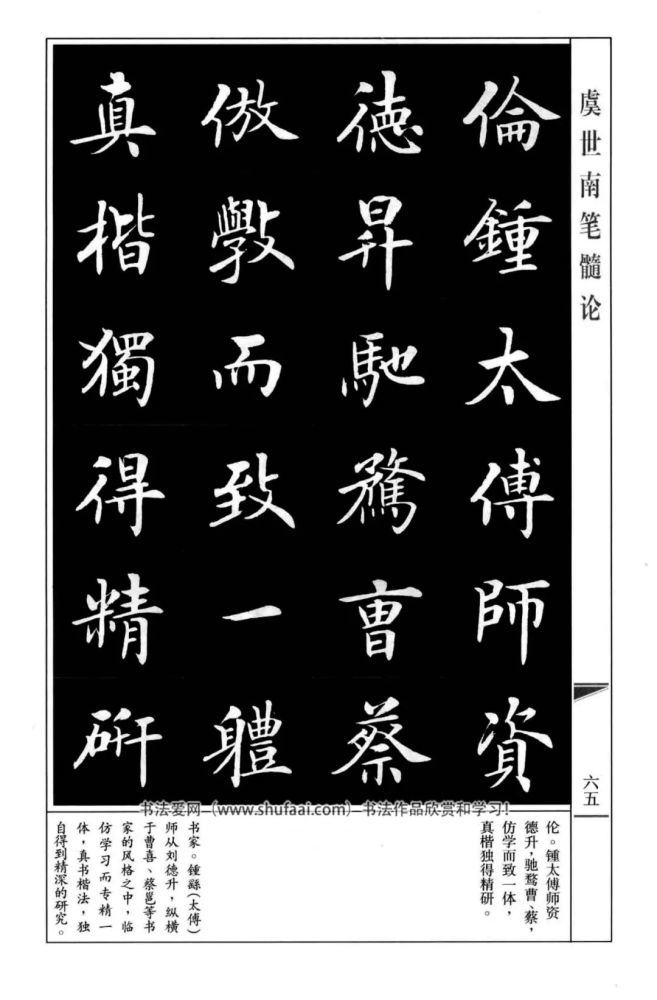 虞世南笔髓论
倫鍾太傅師資
德昇馳騖曺蔡
倣斆而致一體
真楷獨得精研
六五
书法爱网（www.shufaai.com）书法作品欣赏和学习！
伦。锺太傅师资
德升，驰骛曹、蔡，
仿学而致一体，
真楷独得精研。
书家。锺繇（太傅）
师从刘德升，纵横
于曹喜、蔡邕等书
家的风格之中，临
仿学习而专精一
体，真书楷法，独
自得到精深的研究。